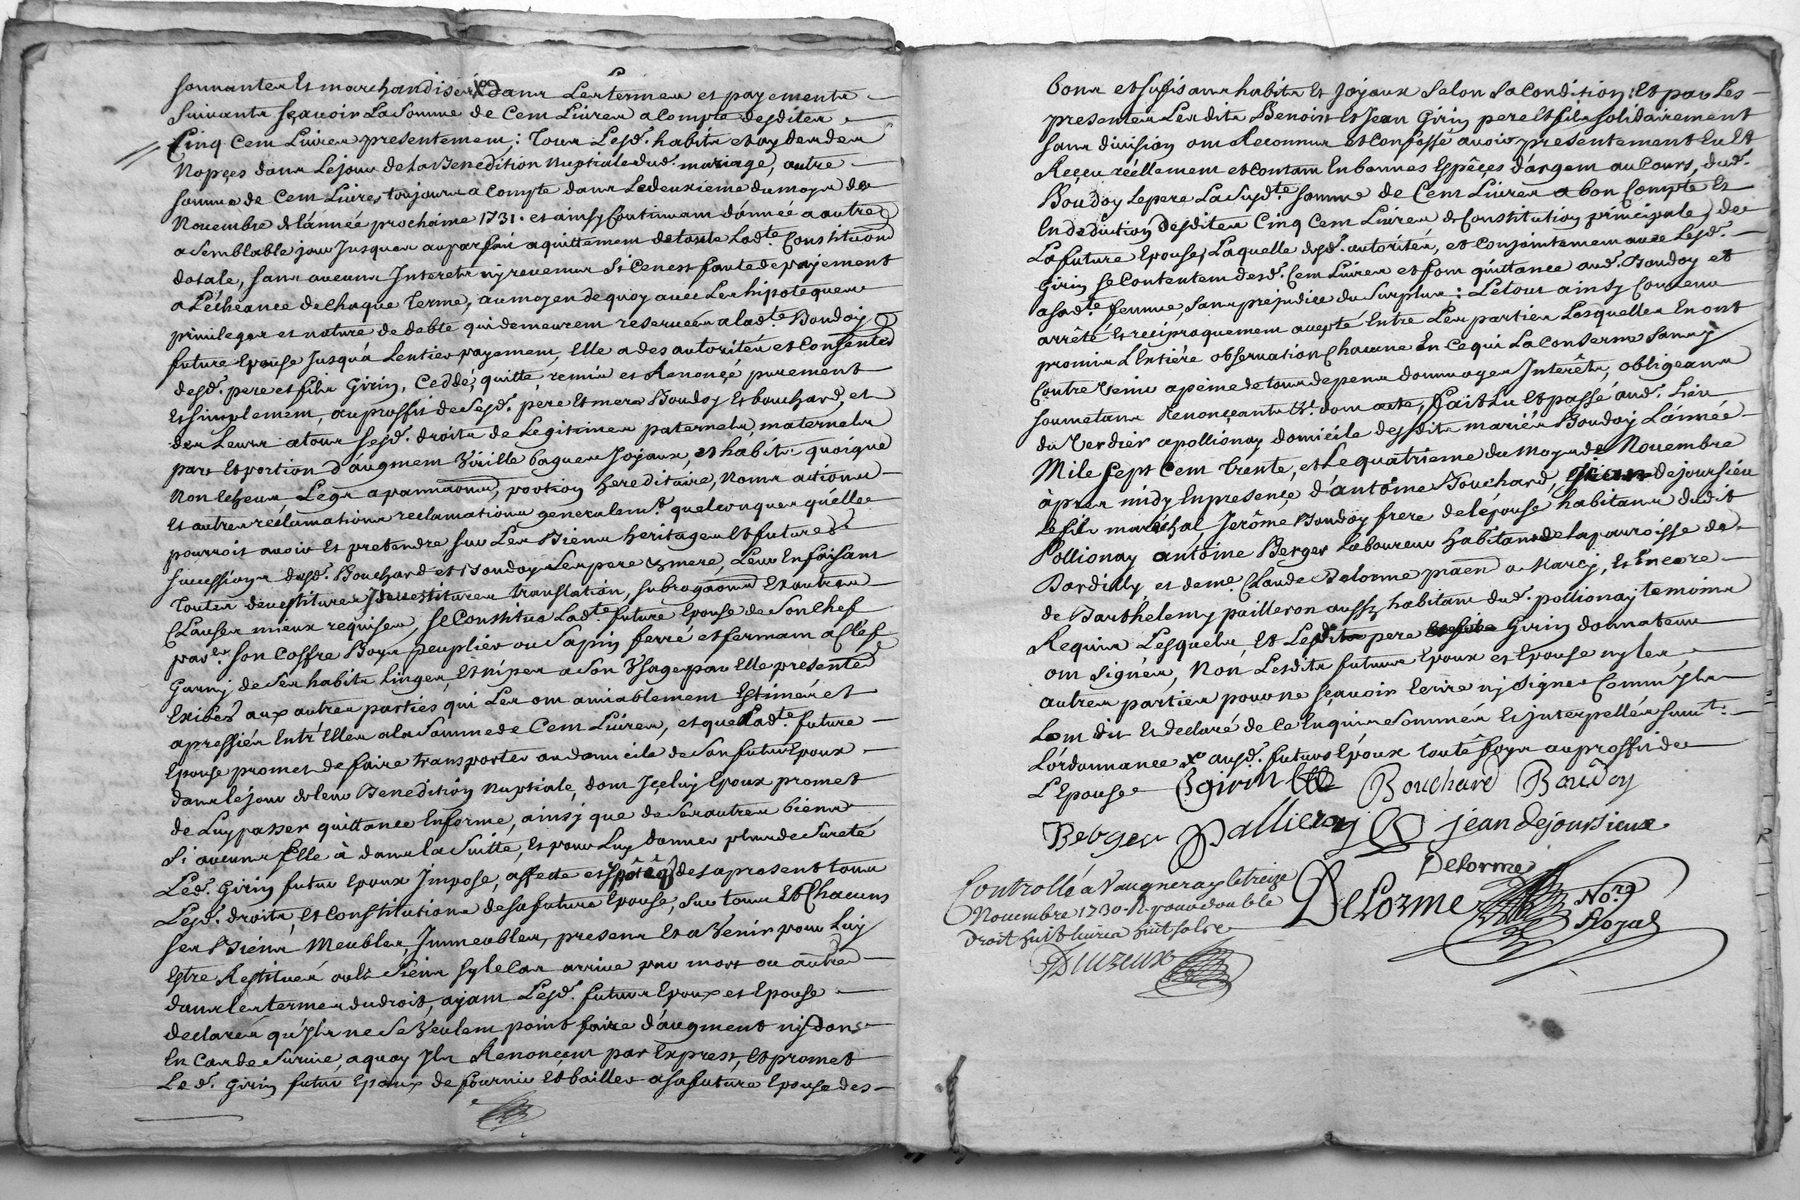 sonnantes et marchandises dans Les termes et payements
suivants sçavoir La somme de Cent Livres a Compte desdites
Cinq Cent Livres presentement; Tous Lesd. habits et
Nopçes dans Le jour de la Benedition Nuptiale dud. mariage, autre
somme de Cent Livres toujours a Compte dans Le deuxieme du moys de
Novembre de l'année prochaine 1731. et ainsy Continuant d'année a autre
a semblable jour Jusques au parfait aquittement de toute Lad.te Constitution
dotale, sans aucuns Interets ny revenus si Ce n'est faute de payement
a L'écheance de chaque terme, au moyen de quoy avec Les hipoteques
privileges et nature de debte qui demeurent reservées a lad.te Boudoy
future Epouse Jusqu'a L'entier payement, Elle a des autorités et Consentes
desd. pere et fils Girin, Ceddé, quitte, remis et Renonçe purement
Et simplement, au proffit de Sesd. pere Et mere Boudoy Et bouchard, et
des Leurs a tous sesd. droits de Legitimes paternels, maternels
part Et portion d'augment Virille bagues Joyaux, et habits quoique
Non Echeus Legs portion hereditaire, Noms actions
Et autres réclamations reclamations generalem.t quelconques qu'elle
pourroit avoir Et pretendre sur Les Biens heritages Et futures
successions desd. Bouchard et Boudoy ses pere & mere, Leur En faisant
toutes devestitures Investitures translation, subrogations Et autres
Clauses mieux requises, se Constitue Lad.te future Epouse de son Chef
par son Coffre Boys peuplier ou Sapin ferré et fermant a Clef
Garny de ses habits linges, Et nipes a son Vsage par Elle presentée
Exibés aux autres parties qui Les ont amiablement Estimés et
apressiés Entr'Elles a la somme de Cent Livres, et que Lad.te future
Epouse promet de faire transporter au domicile de son futur Epoux
dans le jour de leur Benedition Nuptiale, dont Jceluy Epoux promet
de Luy passer quittance En forme, ainsy que de ses autres biens
si aucuns Elle à dans la suitte, Et pour Luy donner plus de sureté
Led. Girin futur Epoux Impose, affecte et hipôtéque des a present tous
Lesd. droits, Et Constitutions de sa future Epouse, sur tous Et Chacuns
ses Biens Meubles, Jmmeubles, presens Et a Venir pour Luy
Estre Restitués ou es siens sy le Cas arrive par mort ou autre
dans les termes du droit, ayant Lesd. futurs Epoux et Epouse
declarés qu'Jls ne se Veulent point faire d'augment ny dons
En Cas de survie, a quoy Jls Renonçent par Exprest, Et promet
Led. Girin futur Epoux de fournir Et bailler a sa future Epouse des
bons et sufisans habits Et Joyaux selon sa Condition; Et par Les
presentes Lesdits Benoist Et Jean Girin pere Et fils solidairement
sans division ont Reconnu et Confessé avoir presentement Eu Et
Reçeu réellement et Contant En bonnes Espêçes d'argent au Cours, dud.
Boudoy Le pere La susd.te somme de Cent Livres a bon Compte Et
En deduction desdites Cinq Cent Livres de Constitution principale de
La future Epouse, Laquelle desd. autorités, et Conjointement avec Lesd.
Girin se Contentent desd. Cent Livres et font quittance aud. Boudoy et
a sad.te femme, sans prejudice du surplus; Le tout ainsy Convenu
arrêté Et reciproquement accepté Entre Les parties Lesquelles En ont
promis L'Entière observation Chacune En Ce qui La Conserne sans y
Contre Venir a peine de tous depens dommages Interêts, obligeans
soumetans Renonçeants &c. dont acte, fait Lu Et passé aud. Lieu
du Verdier a pollionay domicile desdits mariés Boudoy L'année
Mile sept Cent trente, et Le quatrieme du Moys de Novembre
àpres midy En presençe d'antôine Bouchard, de joursieu
Le fils maréchal Jerôme Boudoy frere de l'épouse habitans dudit
Pollionay antôine Berger Laboureur habitant de la parroisse de
Dardilly, et de me. Claude Delorme praēn a Marcy, Et Encore
de Barthelemy pailleron aussy habitant dud. pollionay temoins
Requis Lesquels, Et Lesdits pere Girin donnateur
ont signés, Non Lesdits futurs Epoux et Epouse ny les
autres parties pour ne sçavoir Ecrire ny signer Comm'Jls
L'ont dit Et declaré de Ce Enquis sommés Et interpellés suiv.t
L'ordonnance ausd. futurs Epoux toutefoys au proffit de
L'Epouse Bgirin Bouchard Boudoy
Berger Pallieron jean dejoursieux
Delorme
Controllé a Vaugneray le treize
Novembre 1730. R. pour double
droit huit livres huit sols
DeLorme No.re
Royal